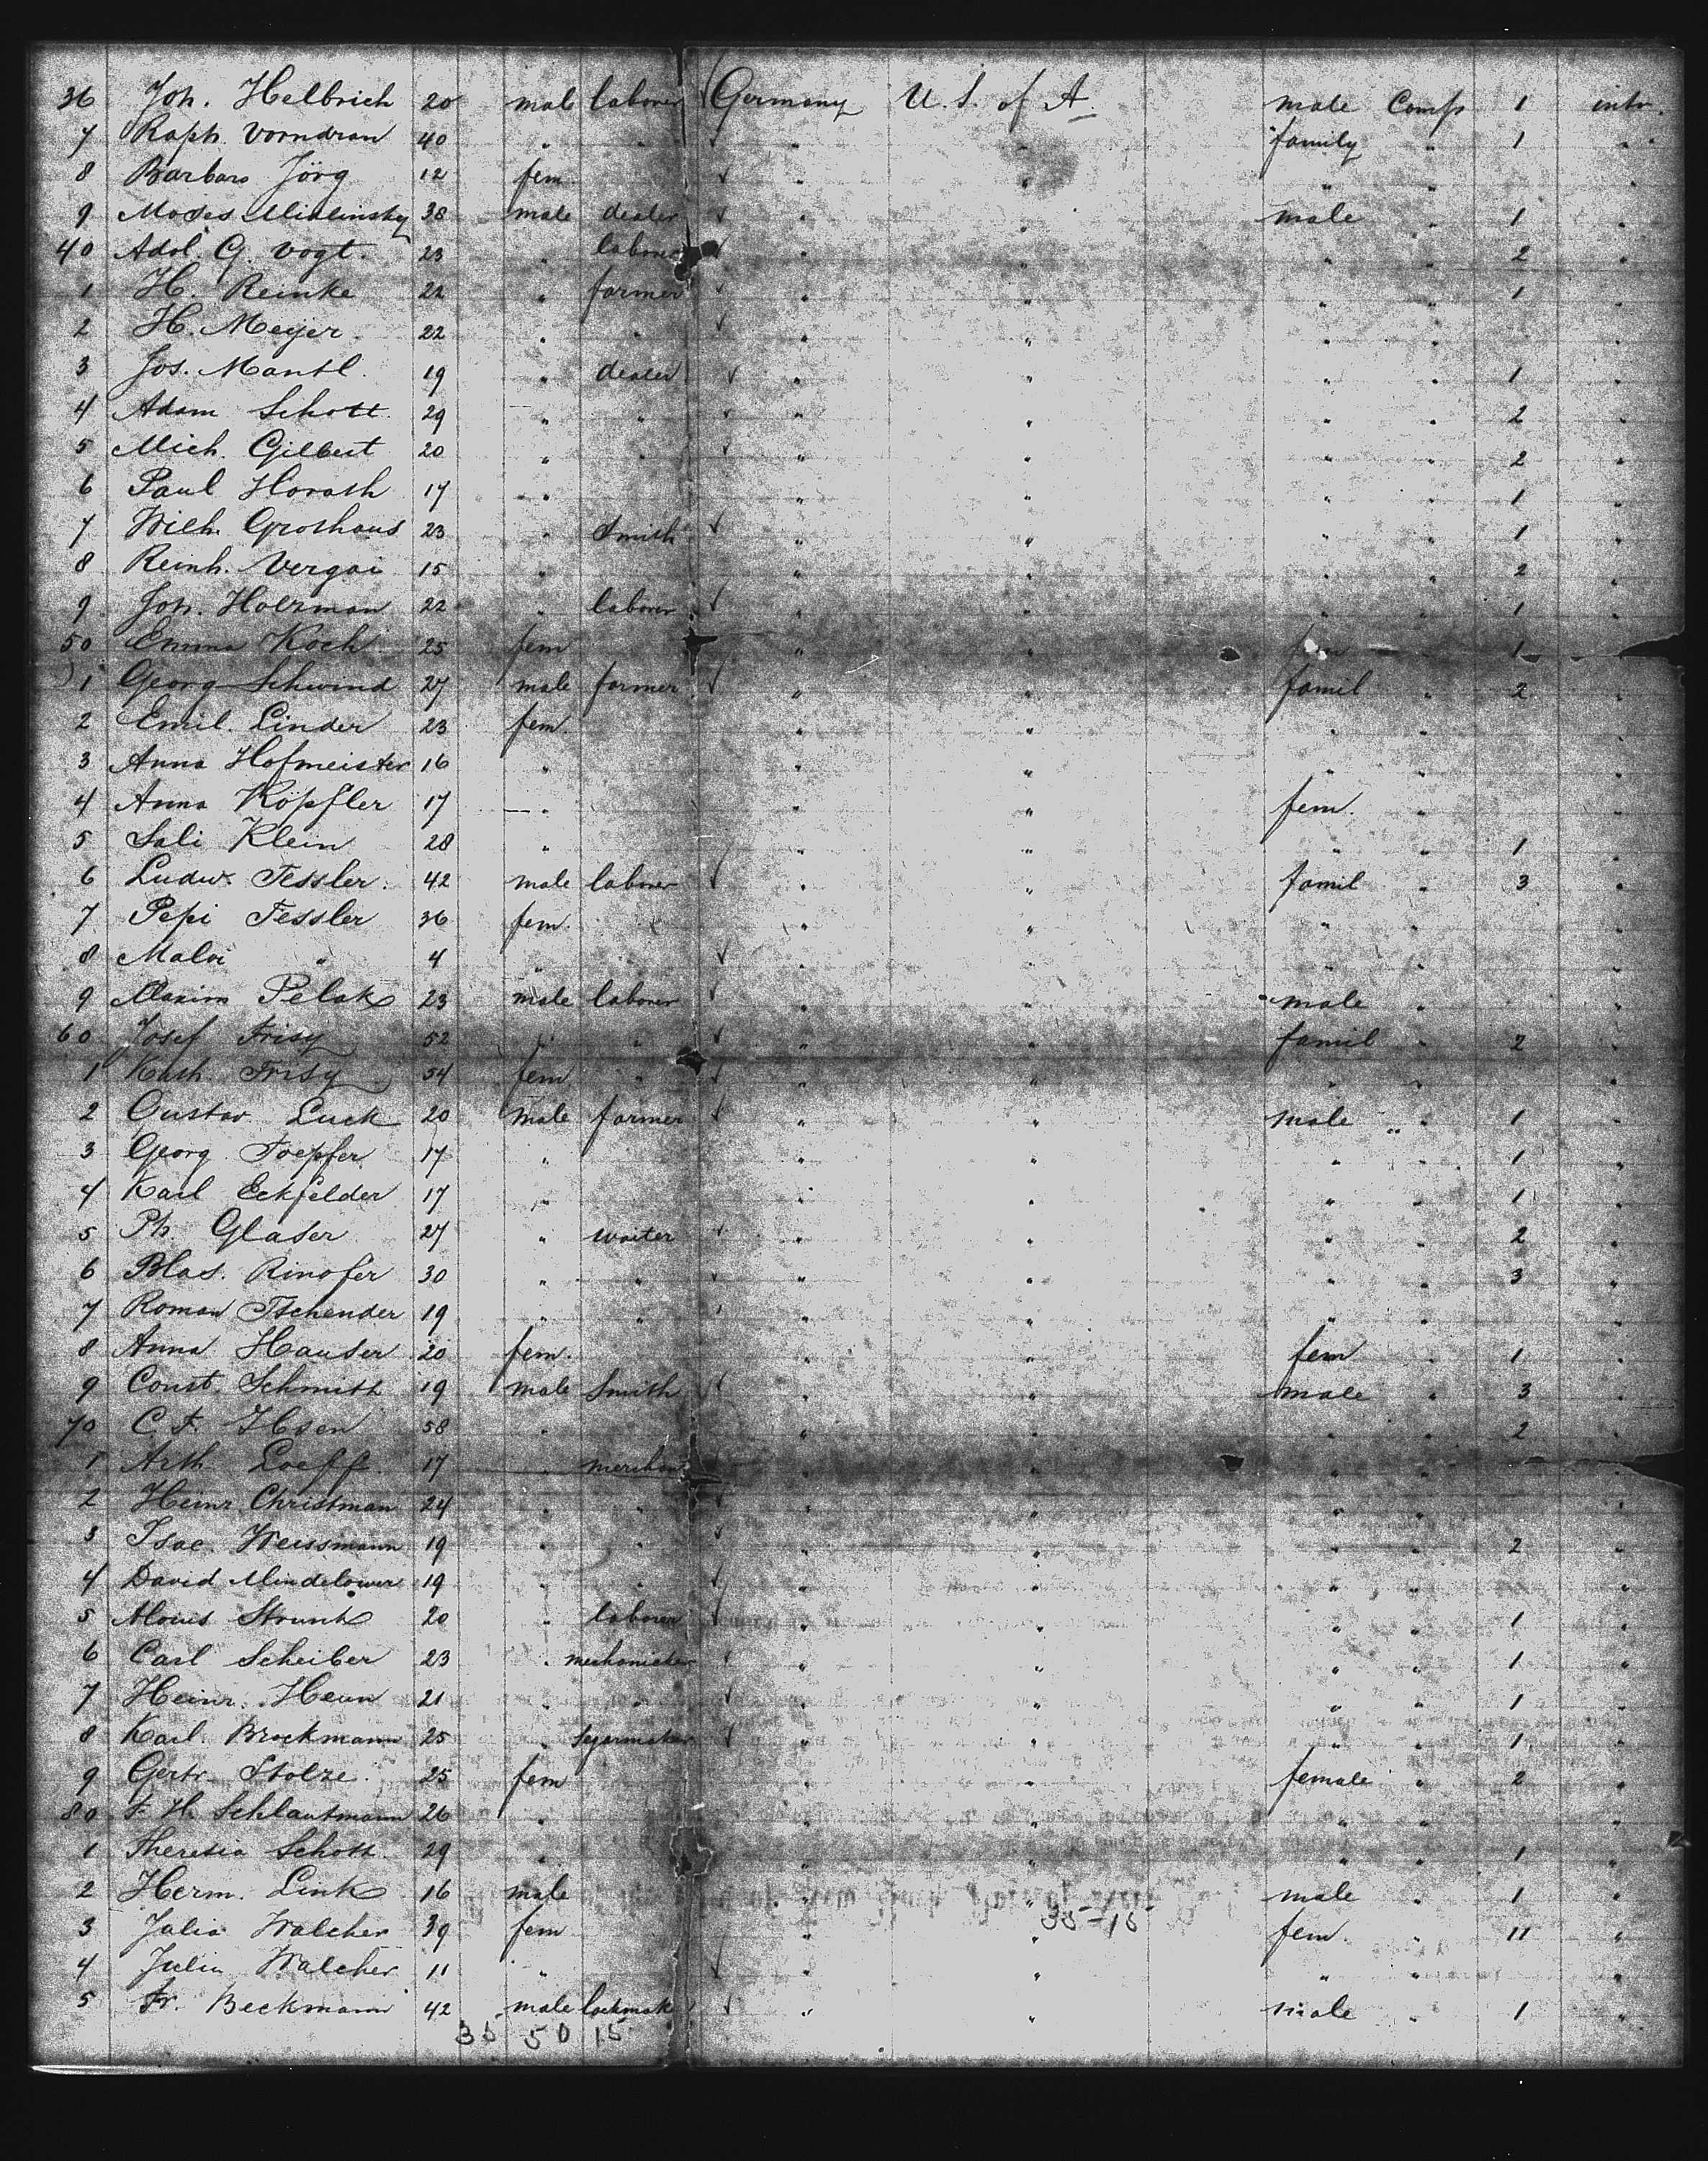 36 Joh. Helbrich 20 male laborer Germany U. S. of A. male Comp 1 intr.
7 Raph. Vorndran 40 " " " " family " 1 "
8 Barbara Jörg 12 fem. " " " " "
9 Moses 38 male dealer " " male " 1 "
40 Adol. G. Vogt. 23 " laborer " " " " 2 "
1 H. Reinke 22 " farmer " " " " 1 "
2 H. Meyer 22 " " " " " " "
3 Jos. Mantl. 19 " dealer " " " " 1 "
4 Adam Schott. 29 " " " " " " 2 "
5 Mich. Gilbert 20 " " " " " " 2 "
6 Paul Horath 17 " " " " " 1 "
7 Wilh. Grothaus 23 " Smith " " " " 1 "
8 Reinh. Vergoi 15 " " " " " 2 "
9 Joh. Holzman 22 " laborer " " " " 1 "
50 Emma Koch 25 fem " " 1 "
1 Georg Schwind 27 male farmer " " famil " 2 "
2 Emil. Linder 23 fem. " " " " "
3 Anna Hofmeister 16 " " " " " "
4 Anna Köpfler 17 " " " fem. " "
5 Sali Klein 28 " " " " " 1 "
6 Ludw. Fessler. 42 male laborer " " famil " 3 "
7 Pepi Fessler 36 fem. " " " " "
8 Malvi " 4 " " " " " "
9 Maxim Pelak 23 male laborer " " male " "
60 Josef Frisy 52 " " " " famil " 2 "
1 Kath. Frisy 54 fem " " " " " "
2 Gustav Luck 20 male farmer " " male " 1 "
3 Georg Toepfer 17 " " " " " 1 "
4 Karl Eckfelder 17 " " " " " 1 "
5 Ph. Glaser 27 " waiter " " " " 2 "
6 Blas. Rinofer 30 " " " " " " 3 "
7 Roman Tschender 19 " " " " " " "
8 Anna Hauser 20 fem. " " fem " 1 "
9 Const. Schmith 19 male Smith " " male " 3 "
70 C. F. 58 " " " " " 2 "
1 Arth. Loeff 17 " " " " " "
2 Heinr. Christman 24 " " " " " " "
3 Isac. Weissmann 19 " " " " " " 2 "
4 David 19 " " " " " " "
5 Alouis Strunk 20 " laborer " " " " 1 "
6 Carl Scheiber 23 " mechanicker " " " " 1 "
7 Heinr. Heun 21 " " " " " " 1 "
8 Karl. Brockmann 25 " " " " " 1 "
9 Gertr. Stolze. 25 fem " " female " 2 "
80 F. H. Schlautmann 26 " " " " " "
1 Theresia Schott. 29 " " " " " 1 "
2 Herm. Link 16 male " " male " 1 "
35-15
3 Julia Walcher 39 fem " " fem. " 11 "
4 Julia Walcher 11 " " " " " "
5 Fr. Beckmann 42 male lockmak " " male " 1 "
35 50 15